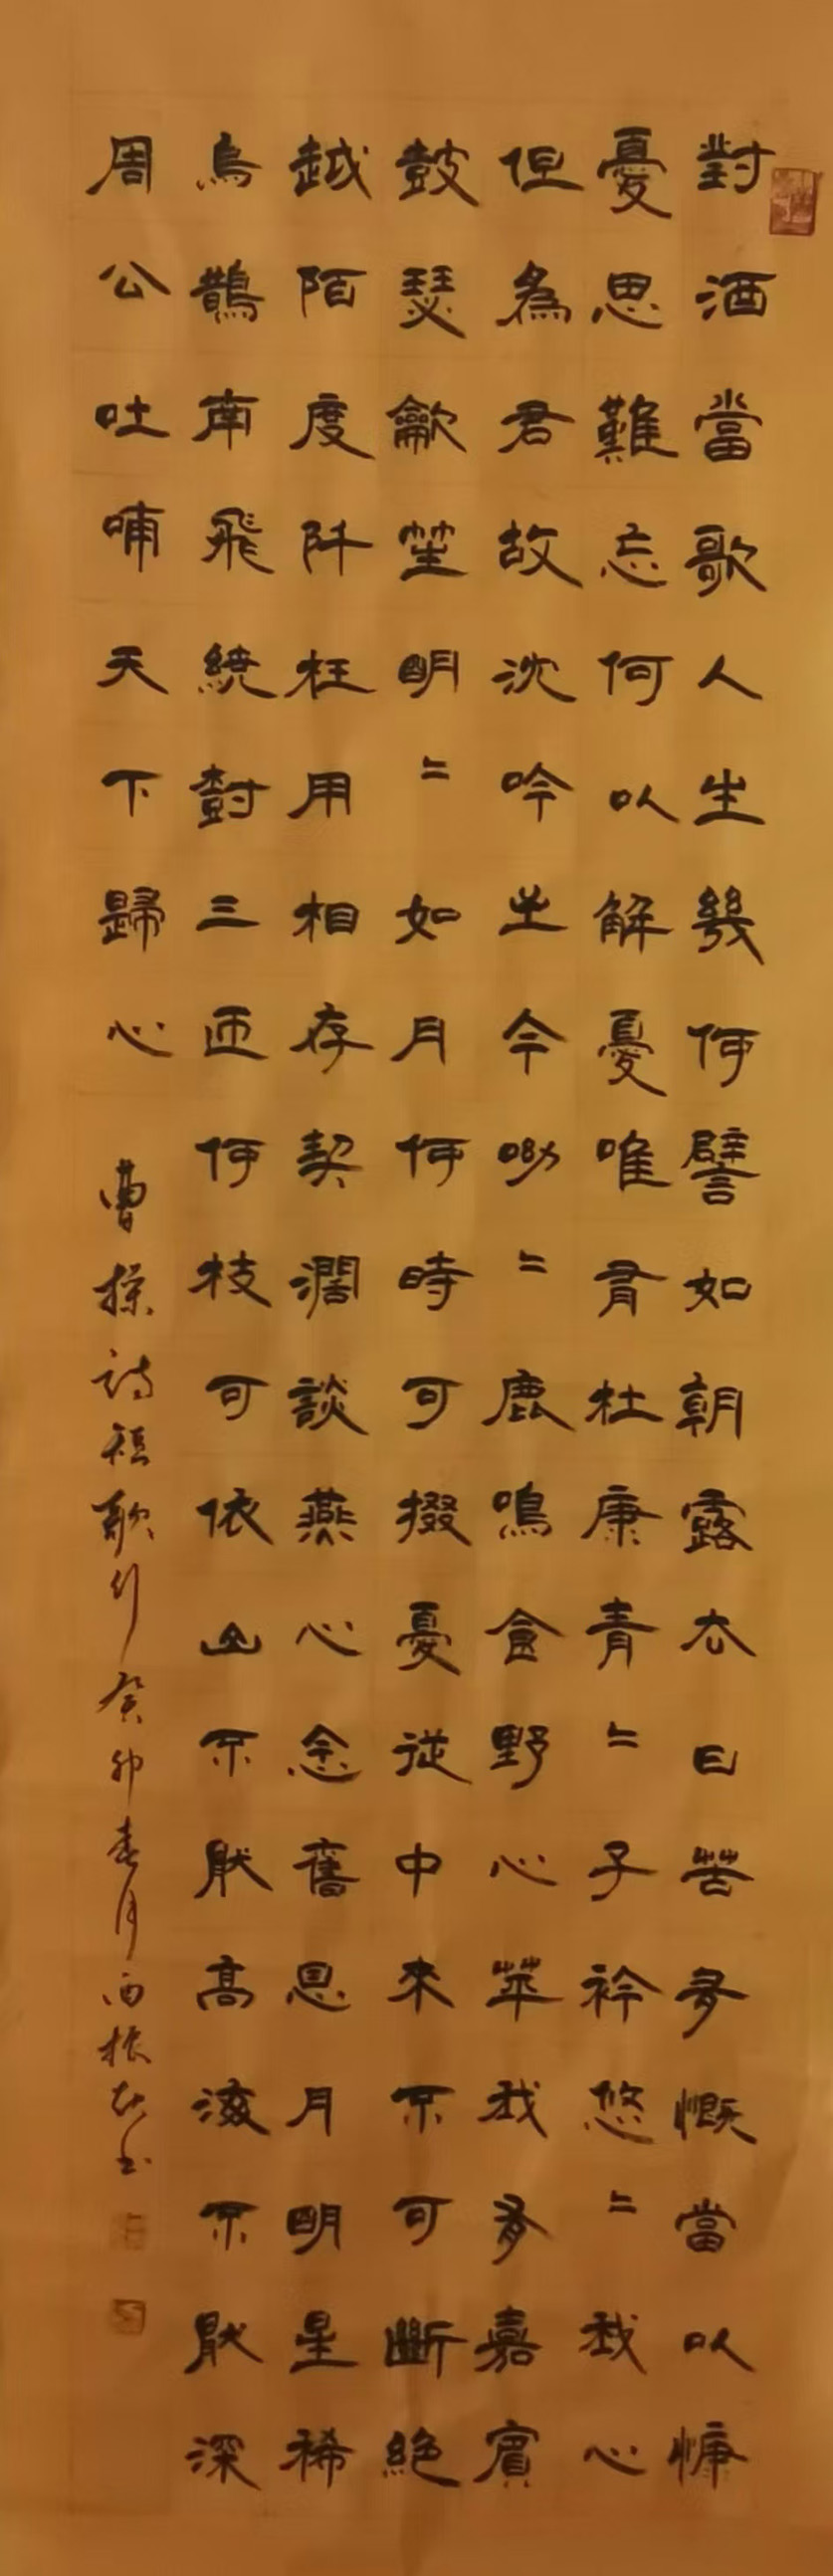 對酒當歌人生幾何譬如朝露去日苦多慨當以慷
憂思難忘何以解憂唯有杜康青〻子衿悠〻我心
但為君故沈吟至今呦〻鹿鳴食野心苹我有嘉賓
鼓瑟龡笙明〻如月何時可掇憂從中來不可斷絕
越陌度阡枉用相存契濶談燕心念舊恩月明星稀
烏鵲南飛繞尌三匝何枝可依山不猒高海不猒深
周公吐哺天下歸心 曹操詩短歌行癸卯春月